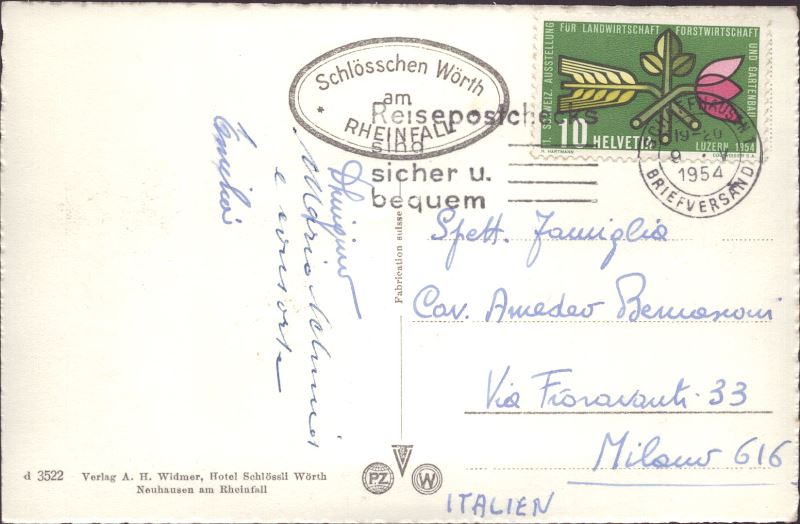 1. SCHWEIZ. AUSSTELLUNG FÜR LANDWIRTSCHAFT FORSTWIRTSCHAFT UND GARTENBAU
10 HELVETIA
LUZERN 1954
H. HARTMANN
COURVOISIER S.A.
Schlösschen Wörth
am
RHEINFALL
Reisepostchecks
sind
sicher u.
bequem
SCHAFFHAUSEN
19-20
9
1954
BRIEFVERSAND
e consorte
Fabrication suisse
Spett. Famiglia
Cav. Amedeo Bernasconi
Via Fioravanti 33
Milano 616
ITALIEN
d 3522 Verlag A. H. Widmer, Hotel Schlössli Wörth
Neuhausen am Rheinfall
PZ
W